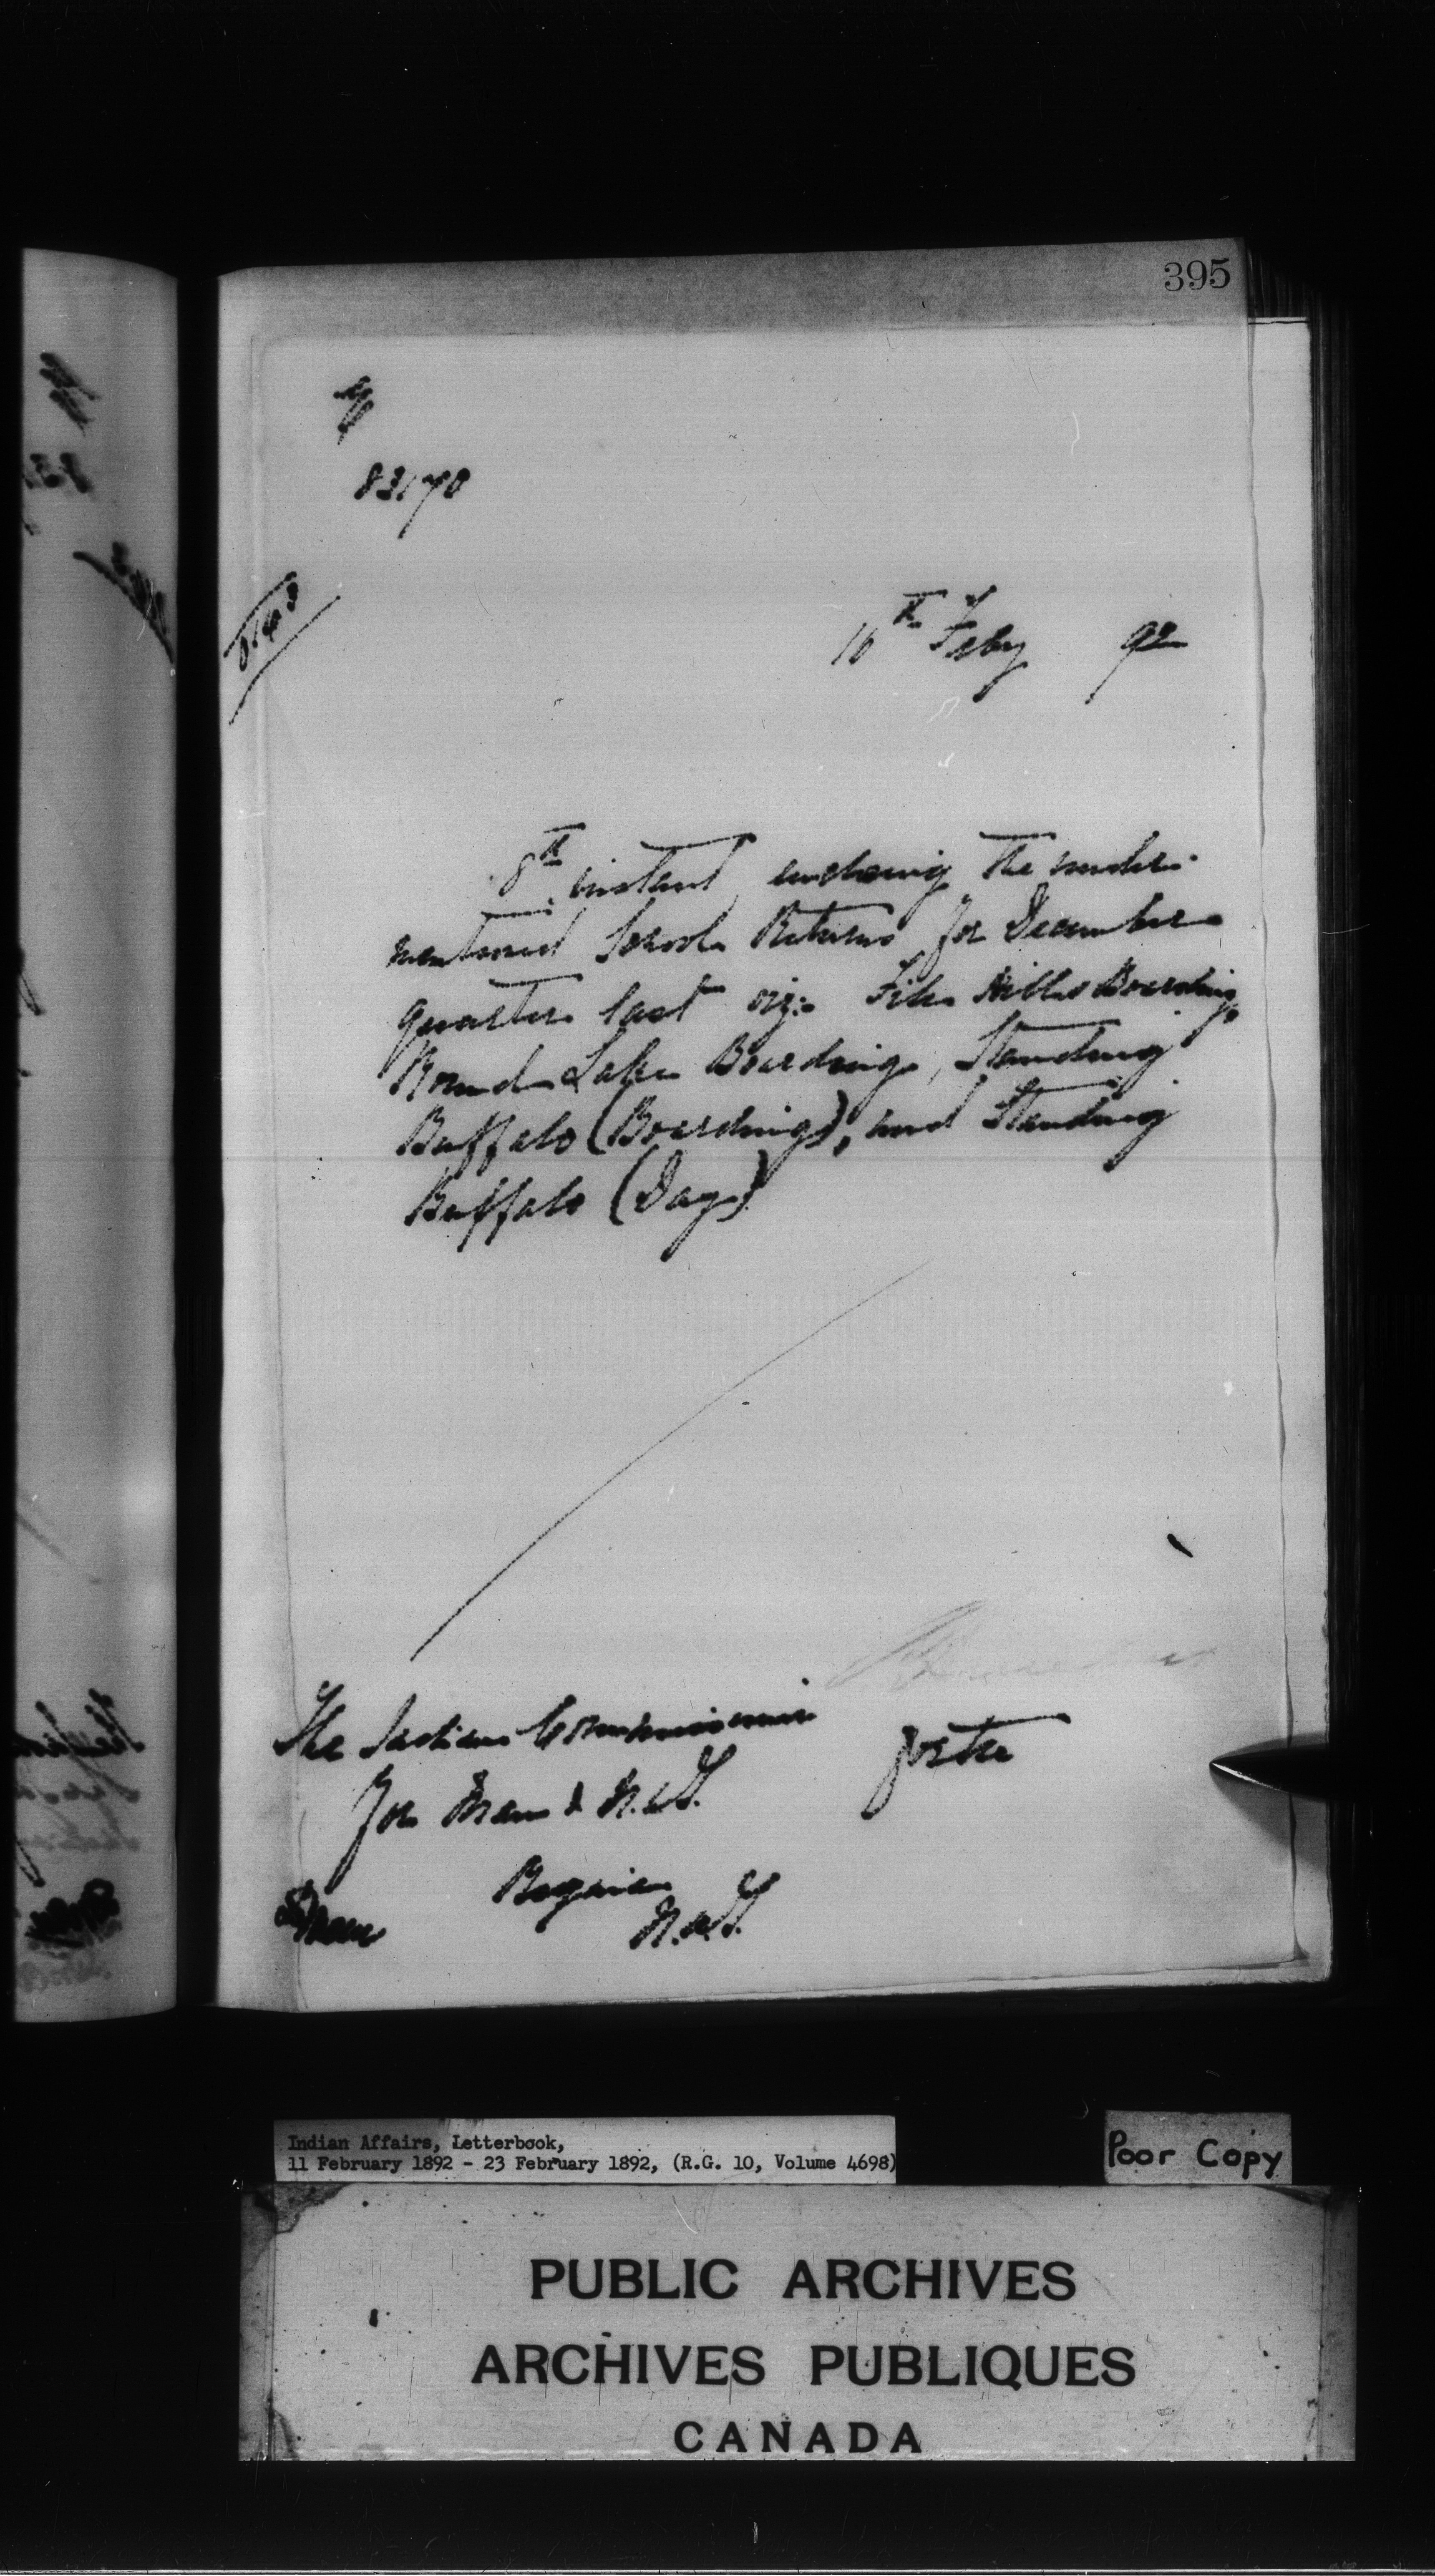 395
83170
16th Feby 92
8th instant enclosing the under-
mentioned School Returns for December
quarter last viz:- File Hills Boarding,
Round Lake Boarding, Standing
Buffalo (Boarding), and Standing
Buffalo (Day)
The Indian Commissioner
for the
For Man & N.W.T.
Regina
N.W.T.
Indian Affairs, Letterbook,
11 February 1892 - 23 February 1892, (R.G. 10, Volume 4698)
Poor Copy
PUBLIC ARCHIVES
ARCHIVES PUBLIQUES
CANADA